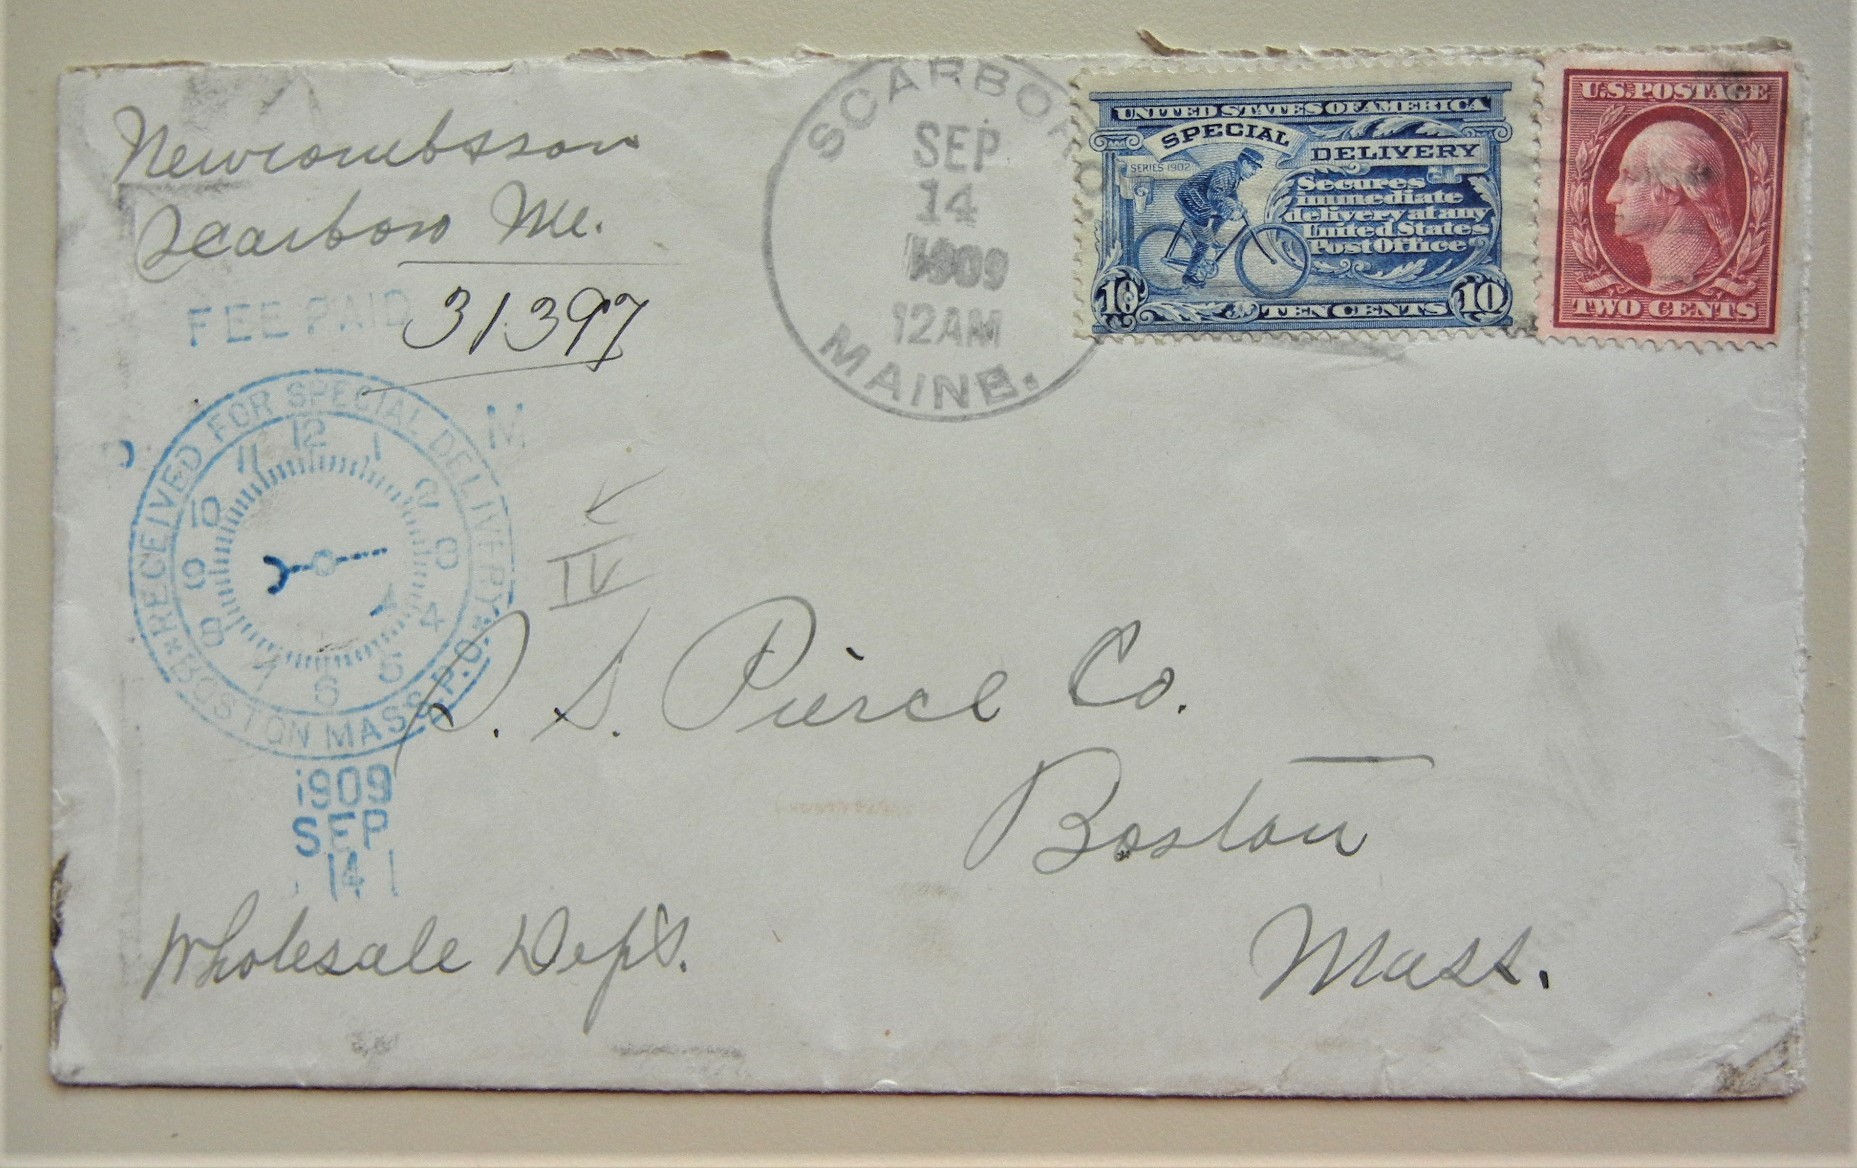 Newcomb & Son
Scarboro Me.
FEE PAID 31397
SCARBORO
SEP
14
1909
12AM
MAINE.
UNITED STATES OF AMERICA
SPECIAL
DELIVERY
SERIES 1902
Secures
immediate
delivery at any
United States
Post Office
10 TEN CENTS 10
U.S. POSTAGE
TWO CENTS
RECEIVED FOR SPECIAL DELIVERY
12 1 2 3 4 5 6 7 8 9 10 11
BOSTON MASS. P.O.
M
IV
1909
SEP
14
S. S. Pierce Co.
Boston
Mass.
Wholesale Dept.